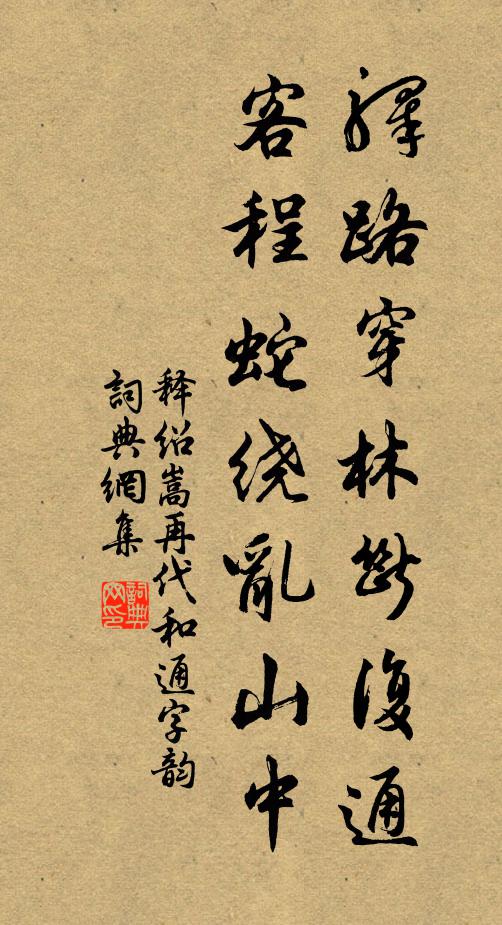 驛路穿林斷復通
客程蛇绕亂山中
释绍嵩再代和通字韵
詞典網集
詞典网印